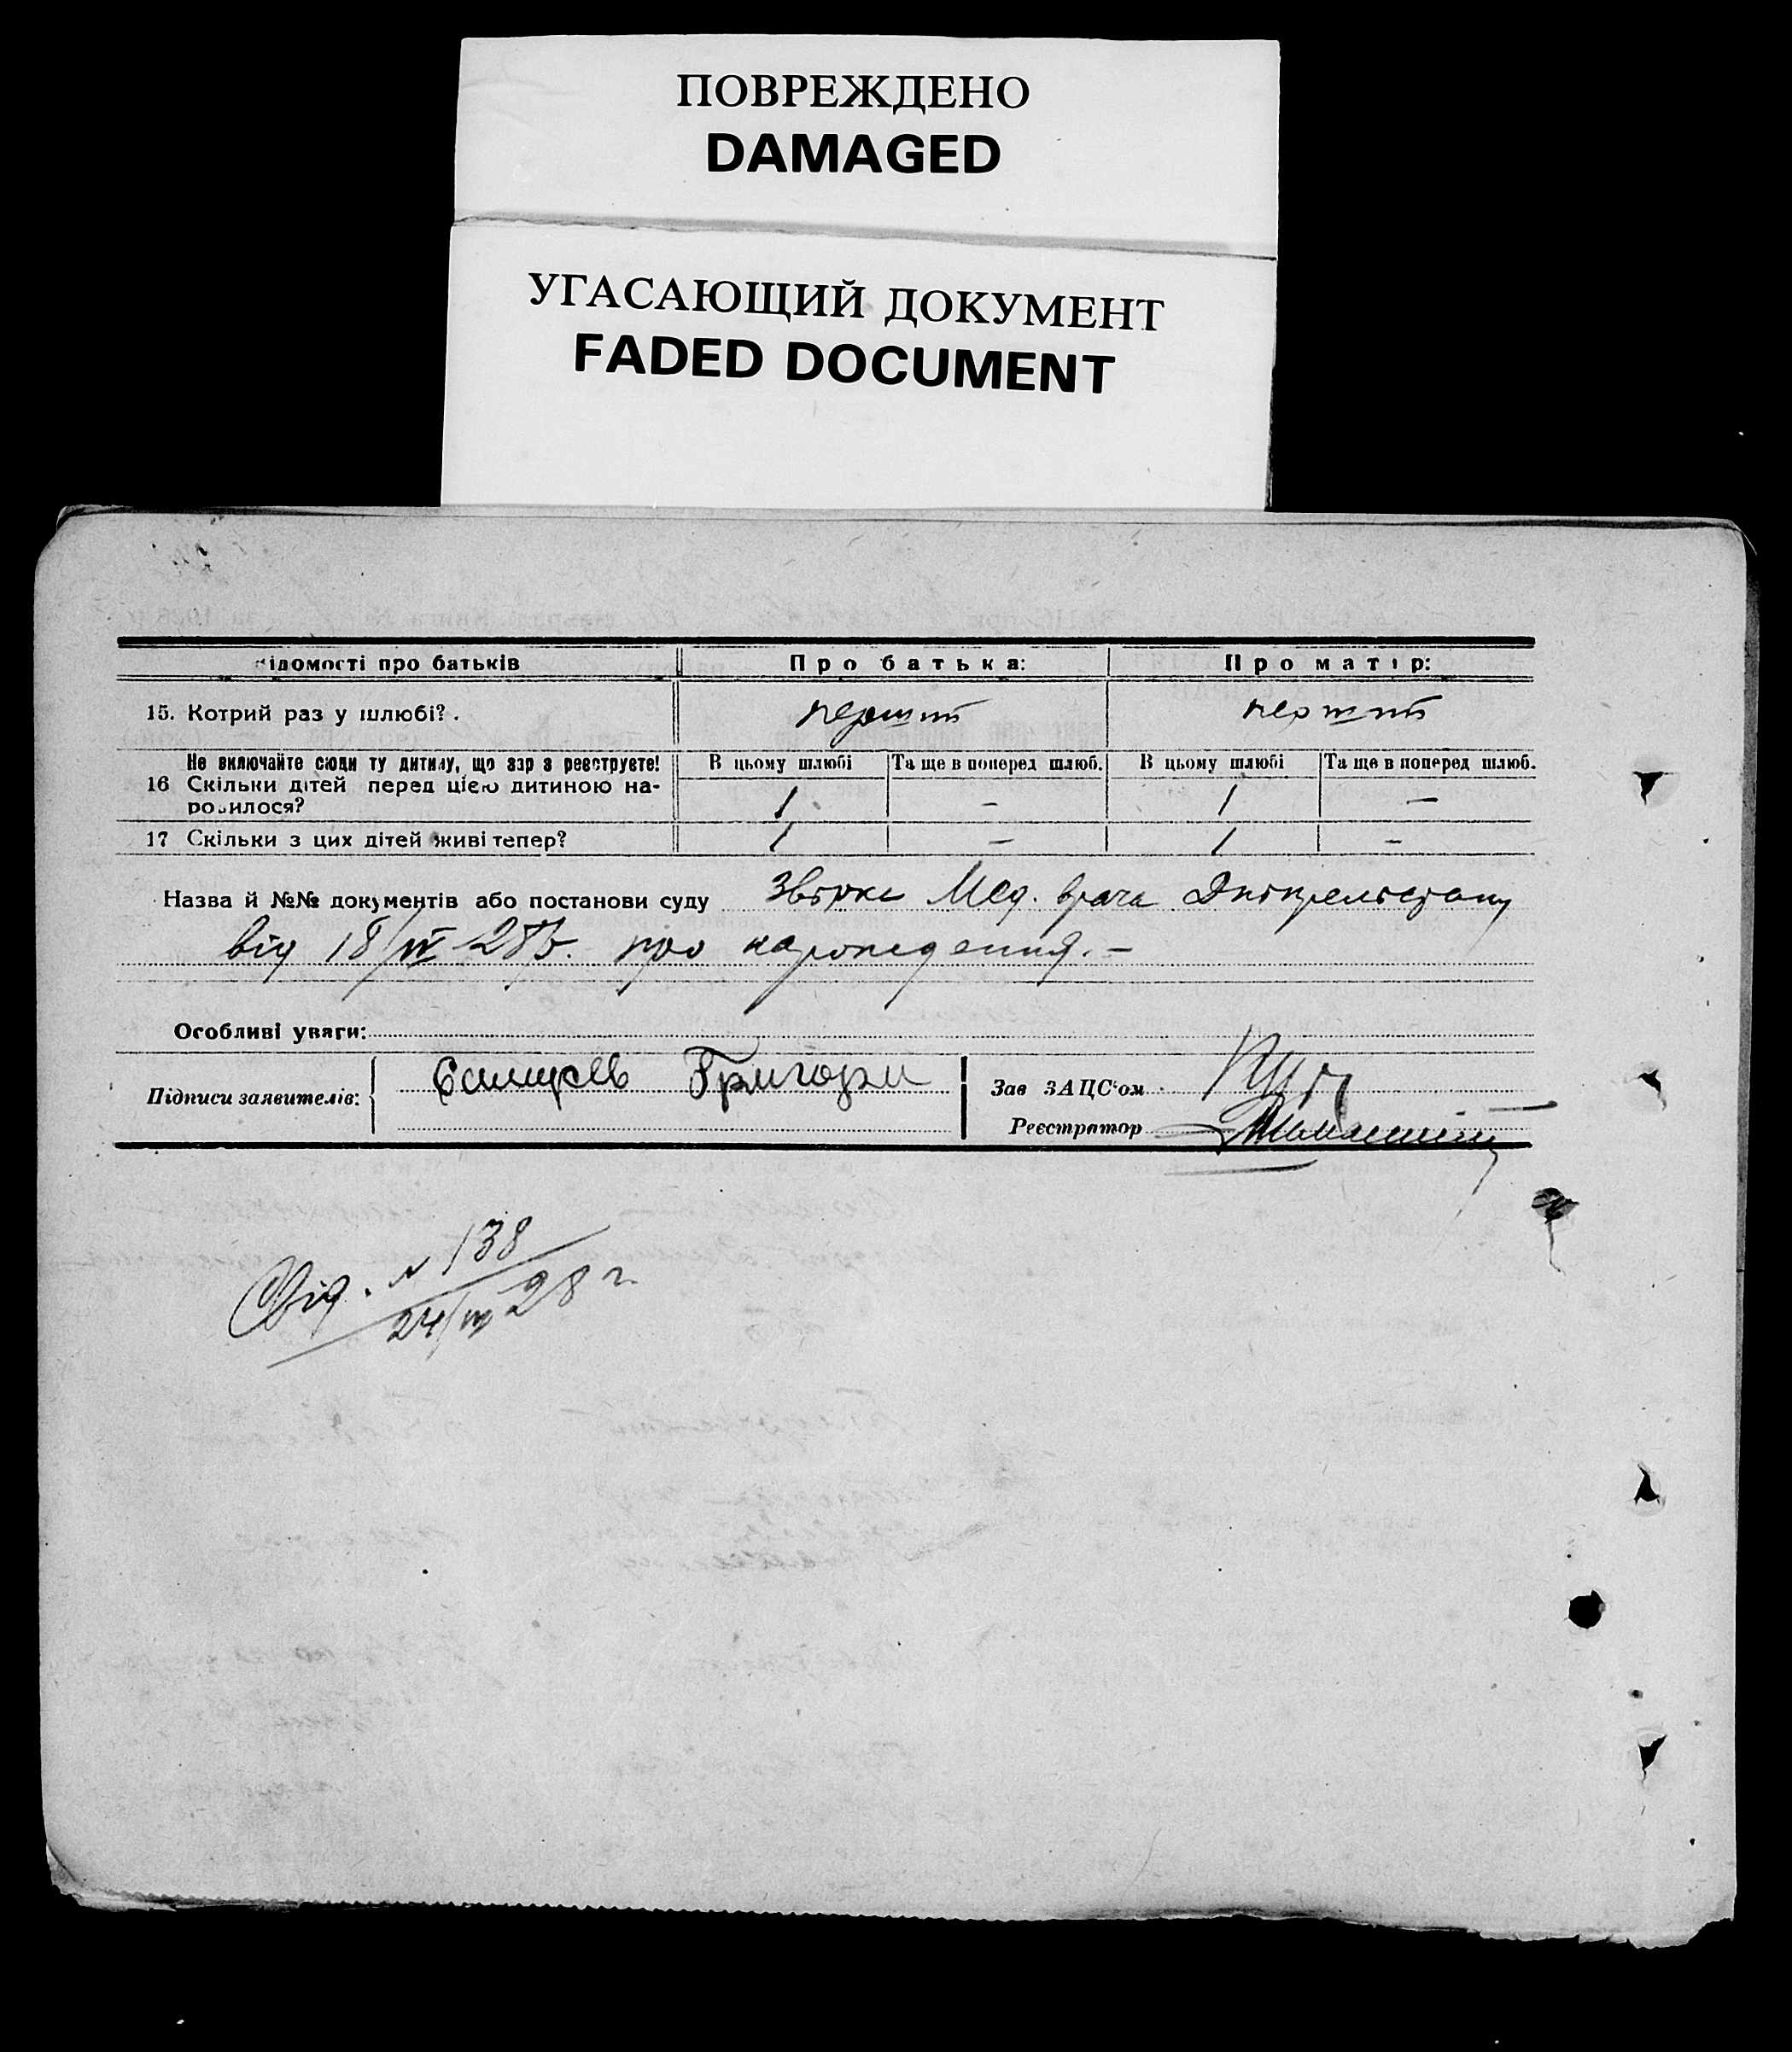 ПОВРЕЖДЕНО
DAMAGED
УГАСАЮЩИЙ ДОКУМЕНТ
FADED DOCUMENT
ідомості про батьків Про батька: Про матір:
15. Котрий раз у шлюбі?. первий первий
Не включайте сюди ту дитину, що зар з реєструєте! В цьому шлюбі Та ще в поперед шлюб. В цьому шлюбі Та ще в поперед шлюб.
16 Скільки дітей перед цією дитиною на-
родилося? 1 – 1 –
17 Скільки з цих дітей живі тепер? 1 – 1 –
Назва й №№ документів або постанови суду Мед. врача
від 18/IV 28р. про народження. –
Особливі уваги:
Підписи заявителів: Григори Зав ЗАЦС'ом
Реєстратор
Свід. № 138
28 г.